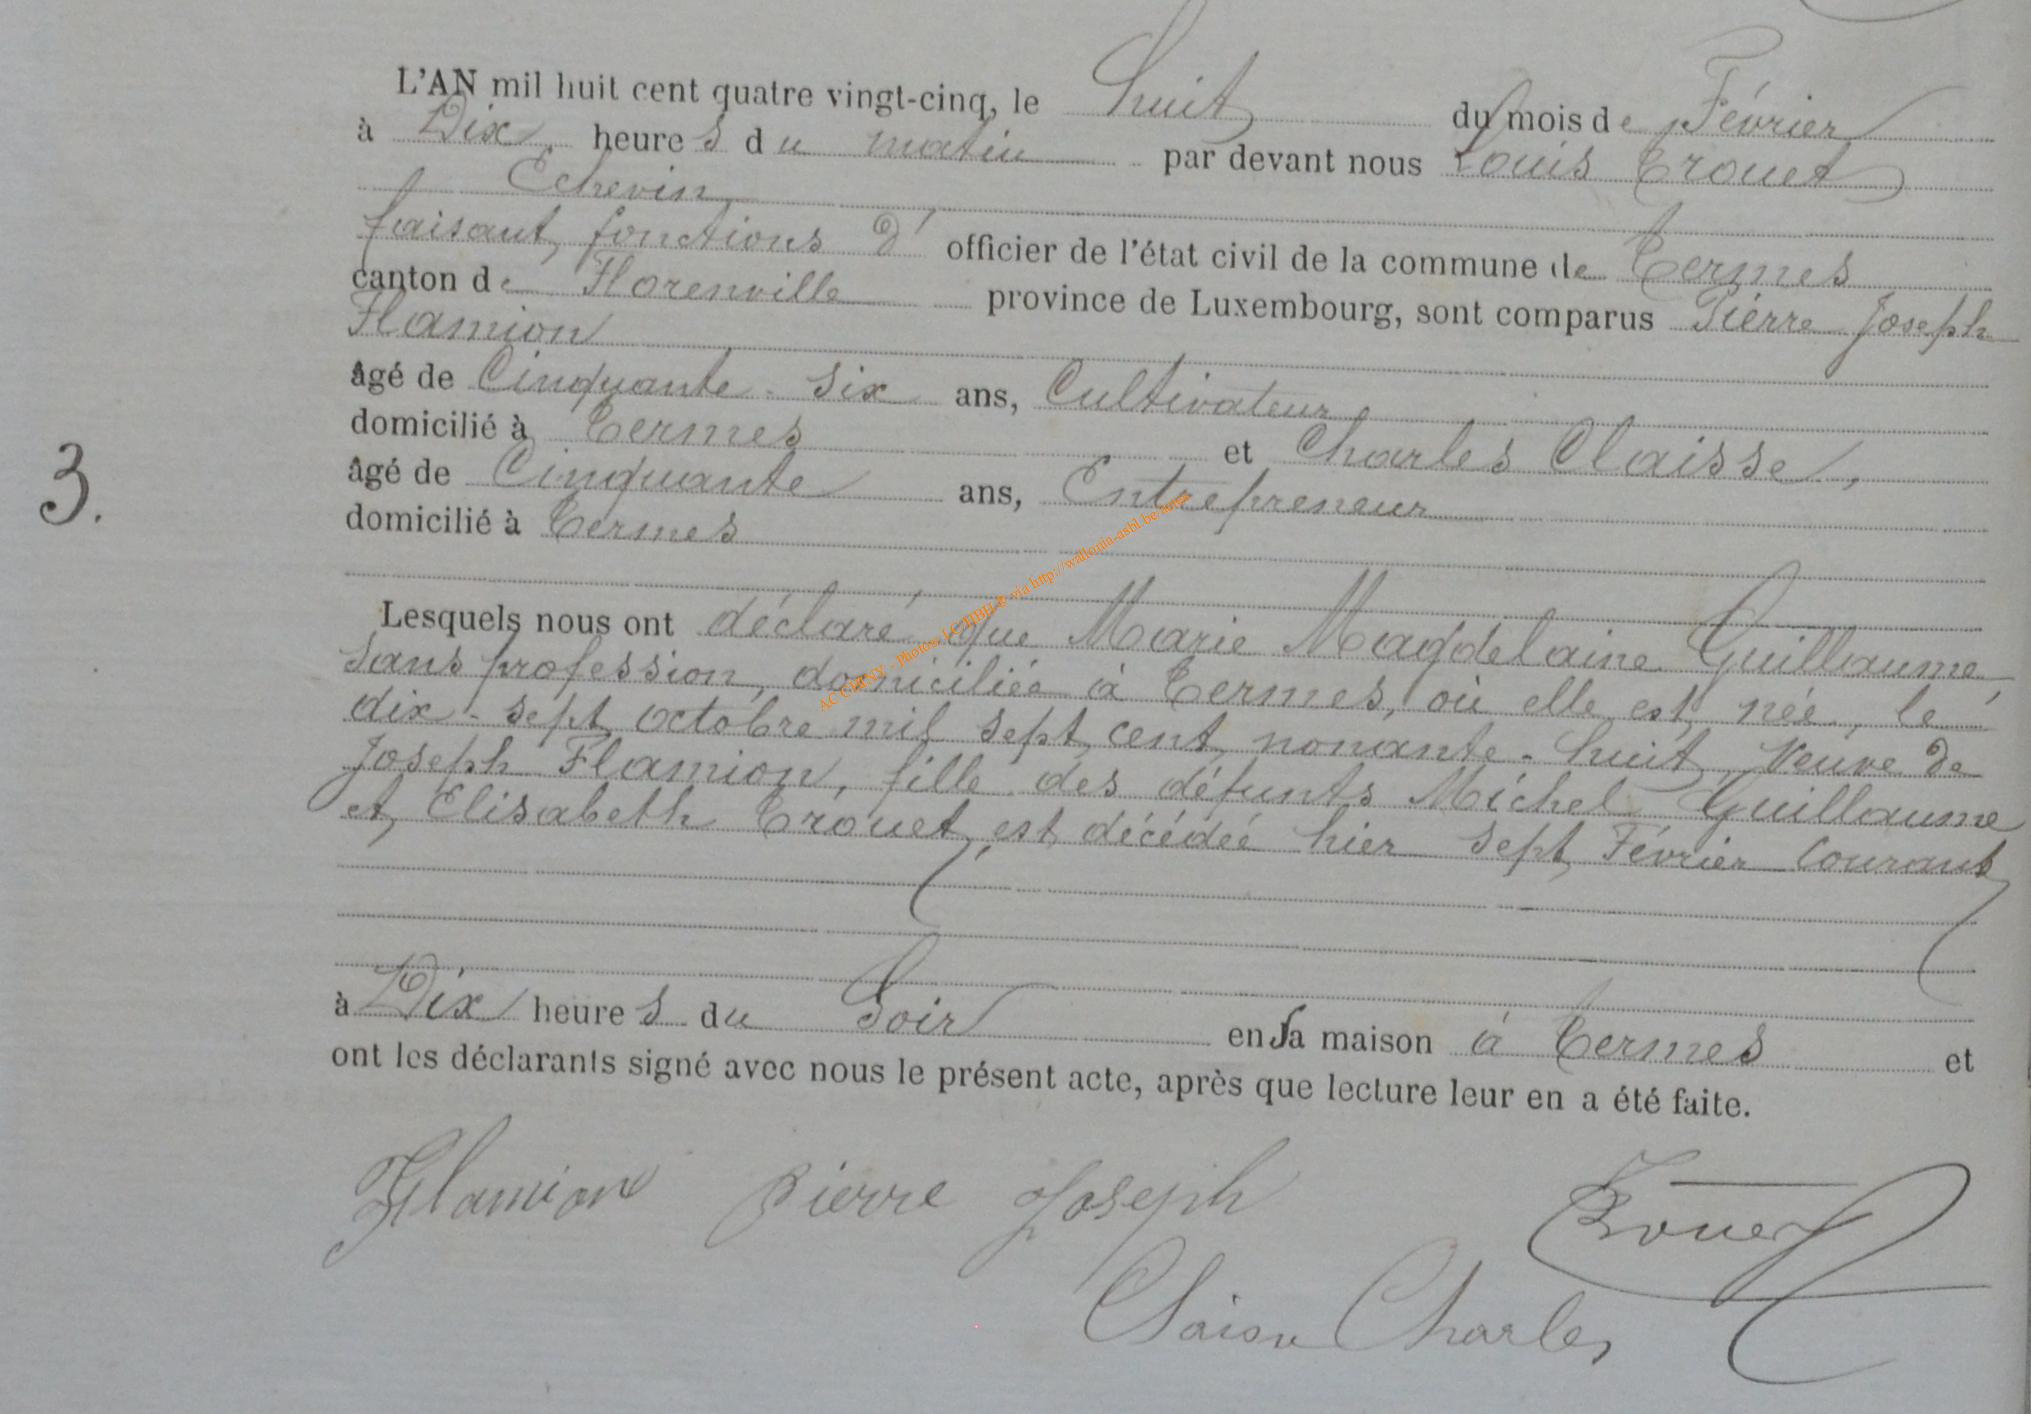 L'AN mil huit cent quatre vingt-cinq, le huit du mois de Février
à Dix heures du matin par devant nous Louis Trouet
Echevin
faisant fonctions d' officier de l'état civil de la commune de Termes
canton de Florenville province de Luxembourg, sont comparus Pierre Joseph
Flamion
âgé de Cinquante-six ans, Cultivateur
domicilié à Termes et Charles Claisse,
3.
âgé de Cinquante ans, Entrepreneur
domicilié à Termes
Lesquels nous ont déclaré que Marie Magdelaine Guillaume
sans profession, domiciliée à Termes, où elle est née, le
dix-sept octobre mil sept cent nonante-huit, Veuve de
Joseph Flamion, fille des défunts Michel Guillaume
et Elisabeth Trouet est décédée hier sept Février courant
à Dix heures du Soir en Sa maison à Termes et
ont les déclarants signé avec nous le présent acte, après que lecture leur en a été faite.
Flamion Pierre Joseph
Trouet
Claisse Charles
via http://wallonia-asbl.be